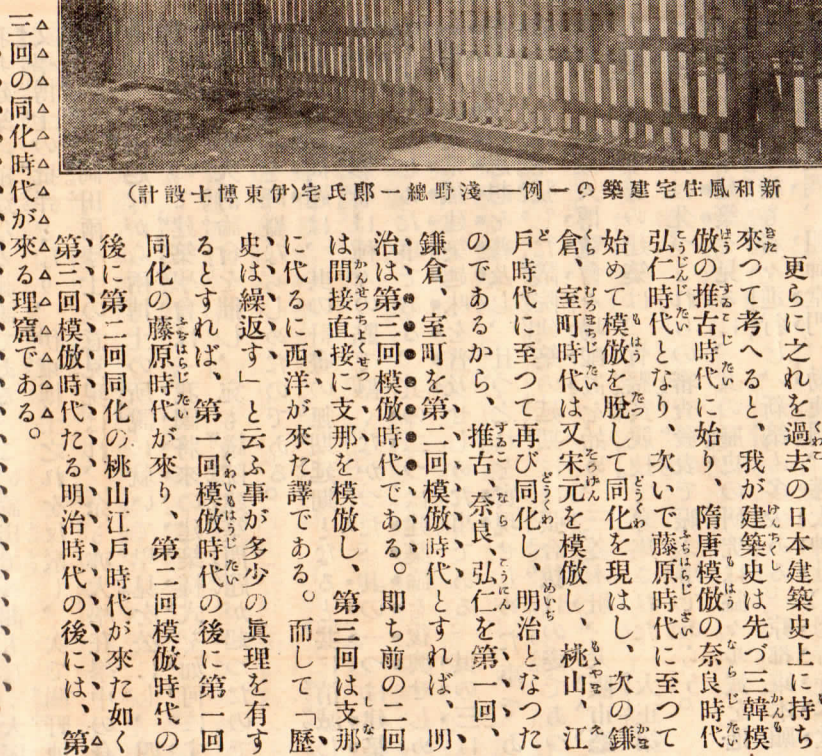 新和風住宅建築の一例――淺野總一郎氏宅(伊東博士設計)
更らに之れを過去の日本建築史上に持ち
來つて考へると、我が建築史は先づ三韓模
倣の推古時代に始り、隋唐模倣の奈良時代
弘仁時代となり、次いで藤原時代に至つて
始めて模倣を脱して同化を現はし、次の鎌
倉、室町時代は又宋元を模倣し、桃山、江
戸時代に至つて再び同化し、明治となつた
のであるから、推古、奈良、弘仁を第一回、
鎌倉、室町を第二回模倣時代とすれば、明
治は第三回模倣時代である。即ち前の二回
は間接直接に支那を模倣し、第三回は支那
に代るに西洋が來た譯である。而して「歷
史は繰返す」と云ふ事が多少の眞理を有す
るとすれば、第一回模倣時代の後に第一回
同化の藤原時代が來り、第二回模倣時代の
後に第二回同化の桃山江戸時代が來た如く
第三回模倣時代たる明治時代の後には、第
三回の同化時代が來る理窟である。